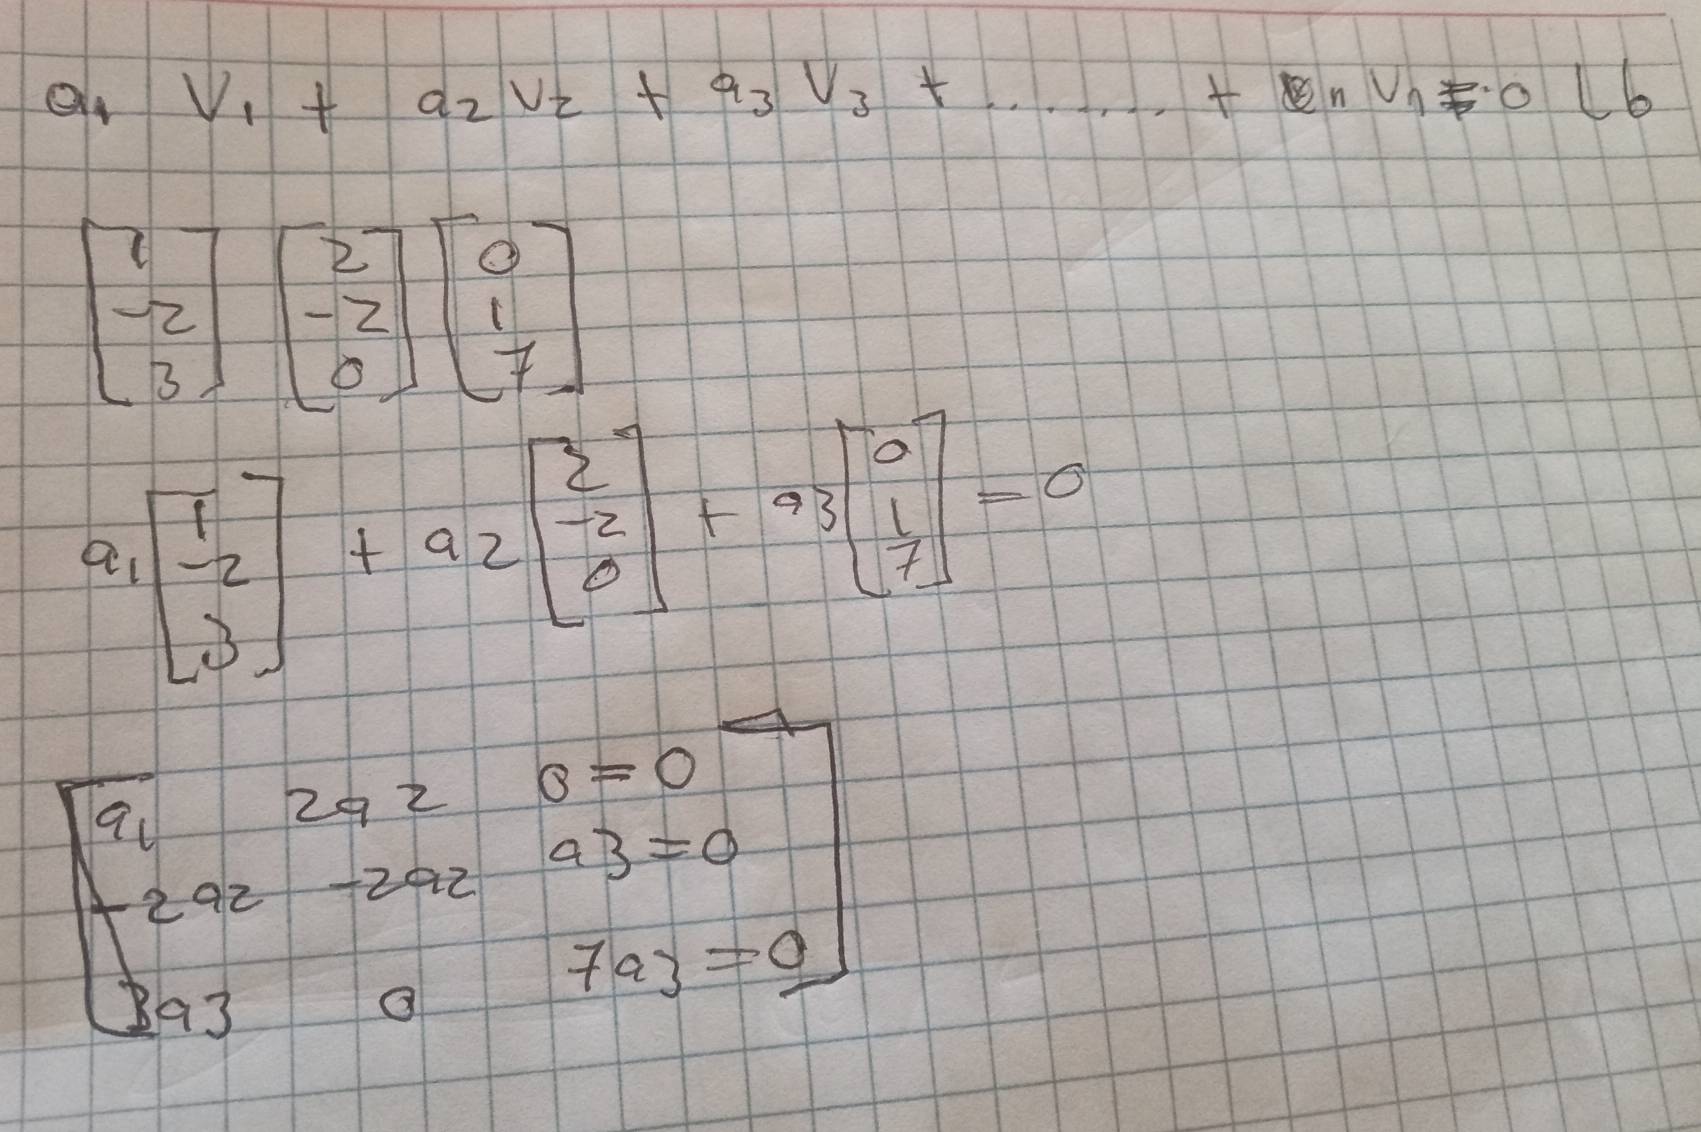 a1 V1 + a2 V2 + a3 V3 + ........ + n Vn = 0 Lb
[1 [2 [0
-2 -2 1
3] 0] 7]
a1 [1 -2 3] + a2 [2 -2 0] + a3 [0 1 7] = 0
a1 2a2 0 = 0
-2a2 -2a2 a3 = 0
3a3 0 7a3 = 0